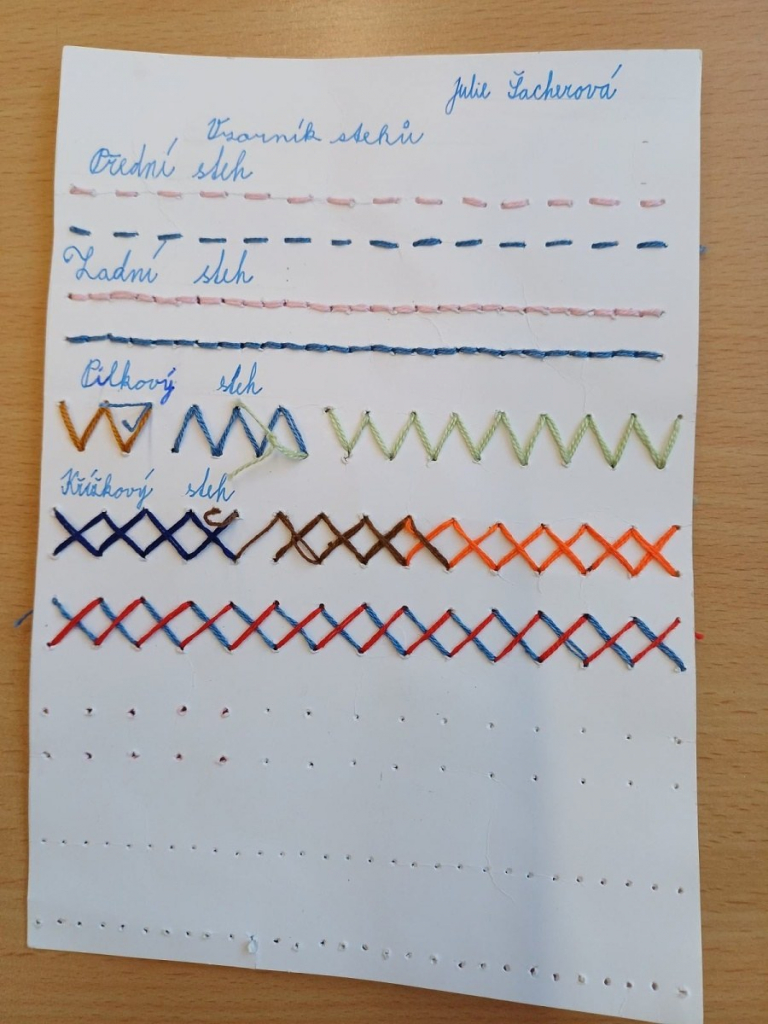 Julie Šacherová
Vzorník stehů
Přední steh
Zadní steh
Pilkový steh
Křížkový steh